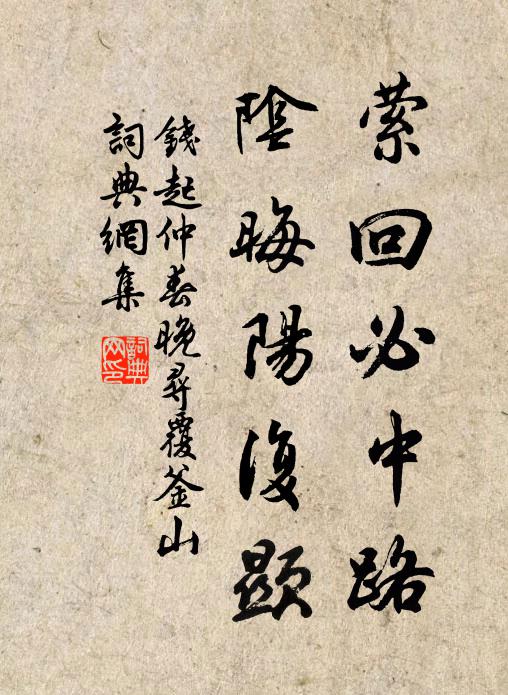 萦回必中路
陰晦陽復顯
錢起仲春晚尋覆釜山
詞典網集
詞典网印